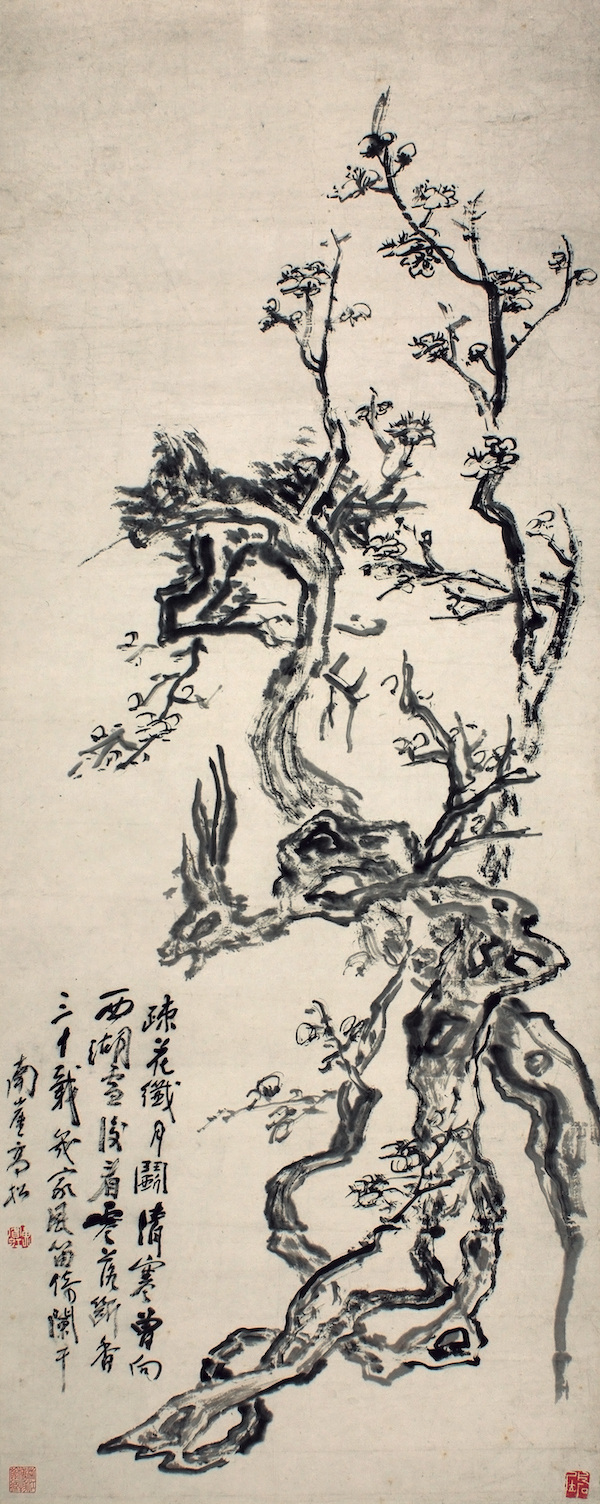 疎花纖月鬭清寒曽向
西湖雪後看零落斷香
三十載幾家風笛倚闌干
南崖高松